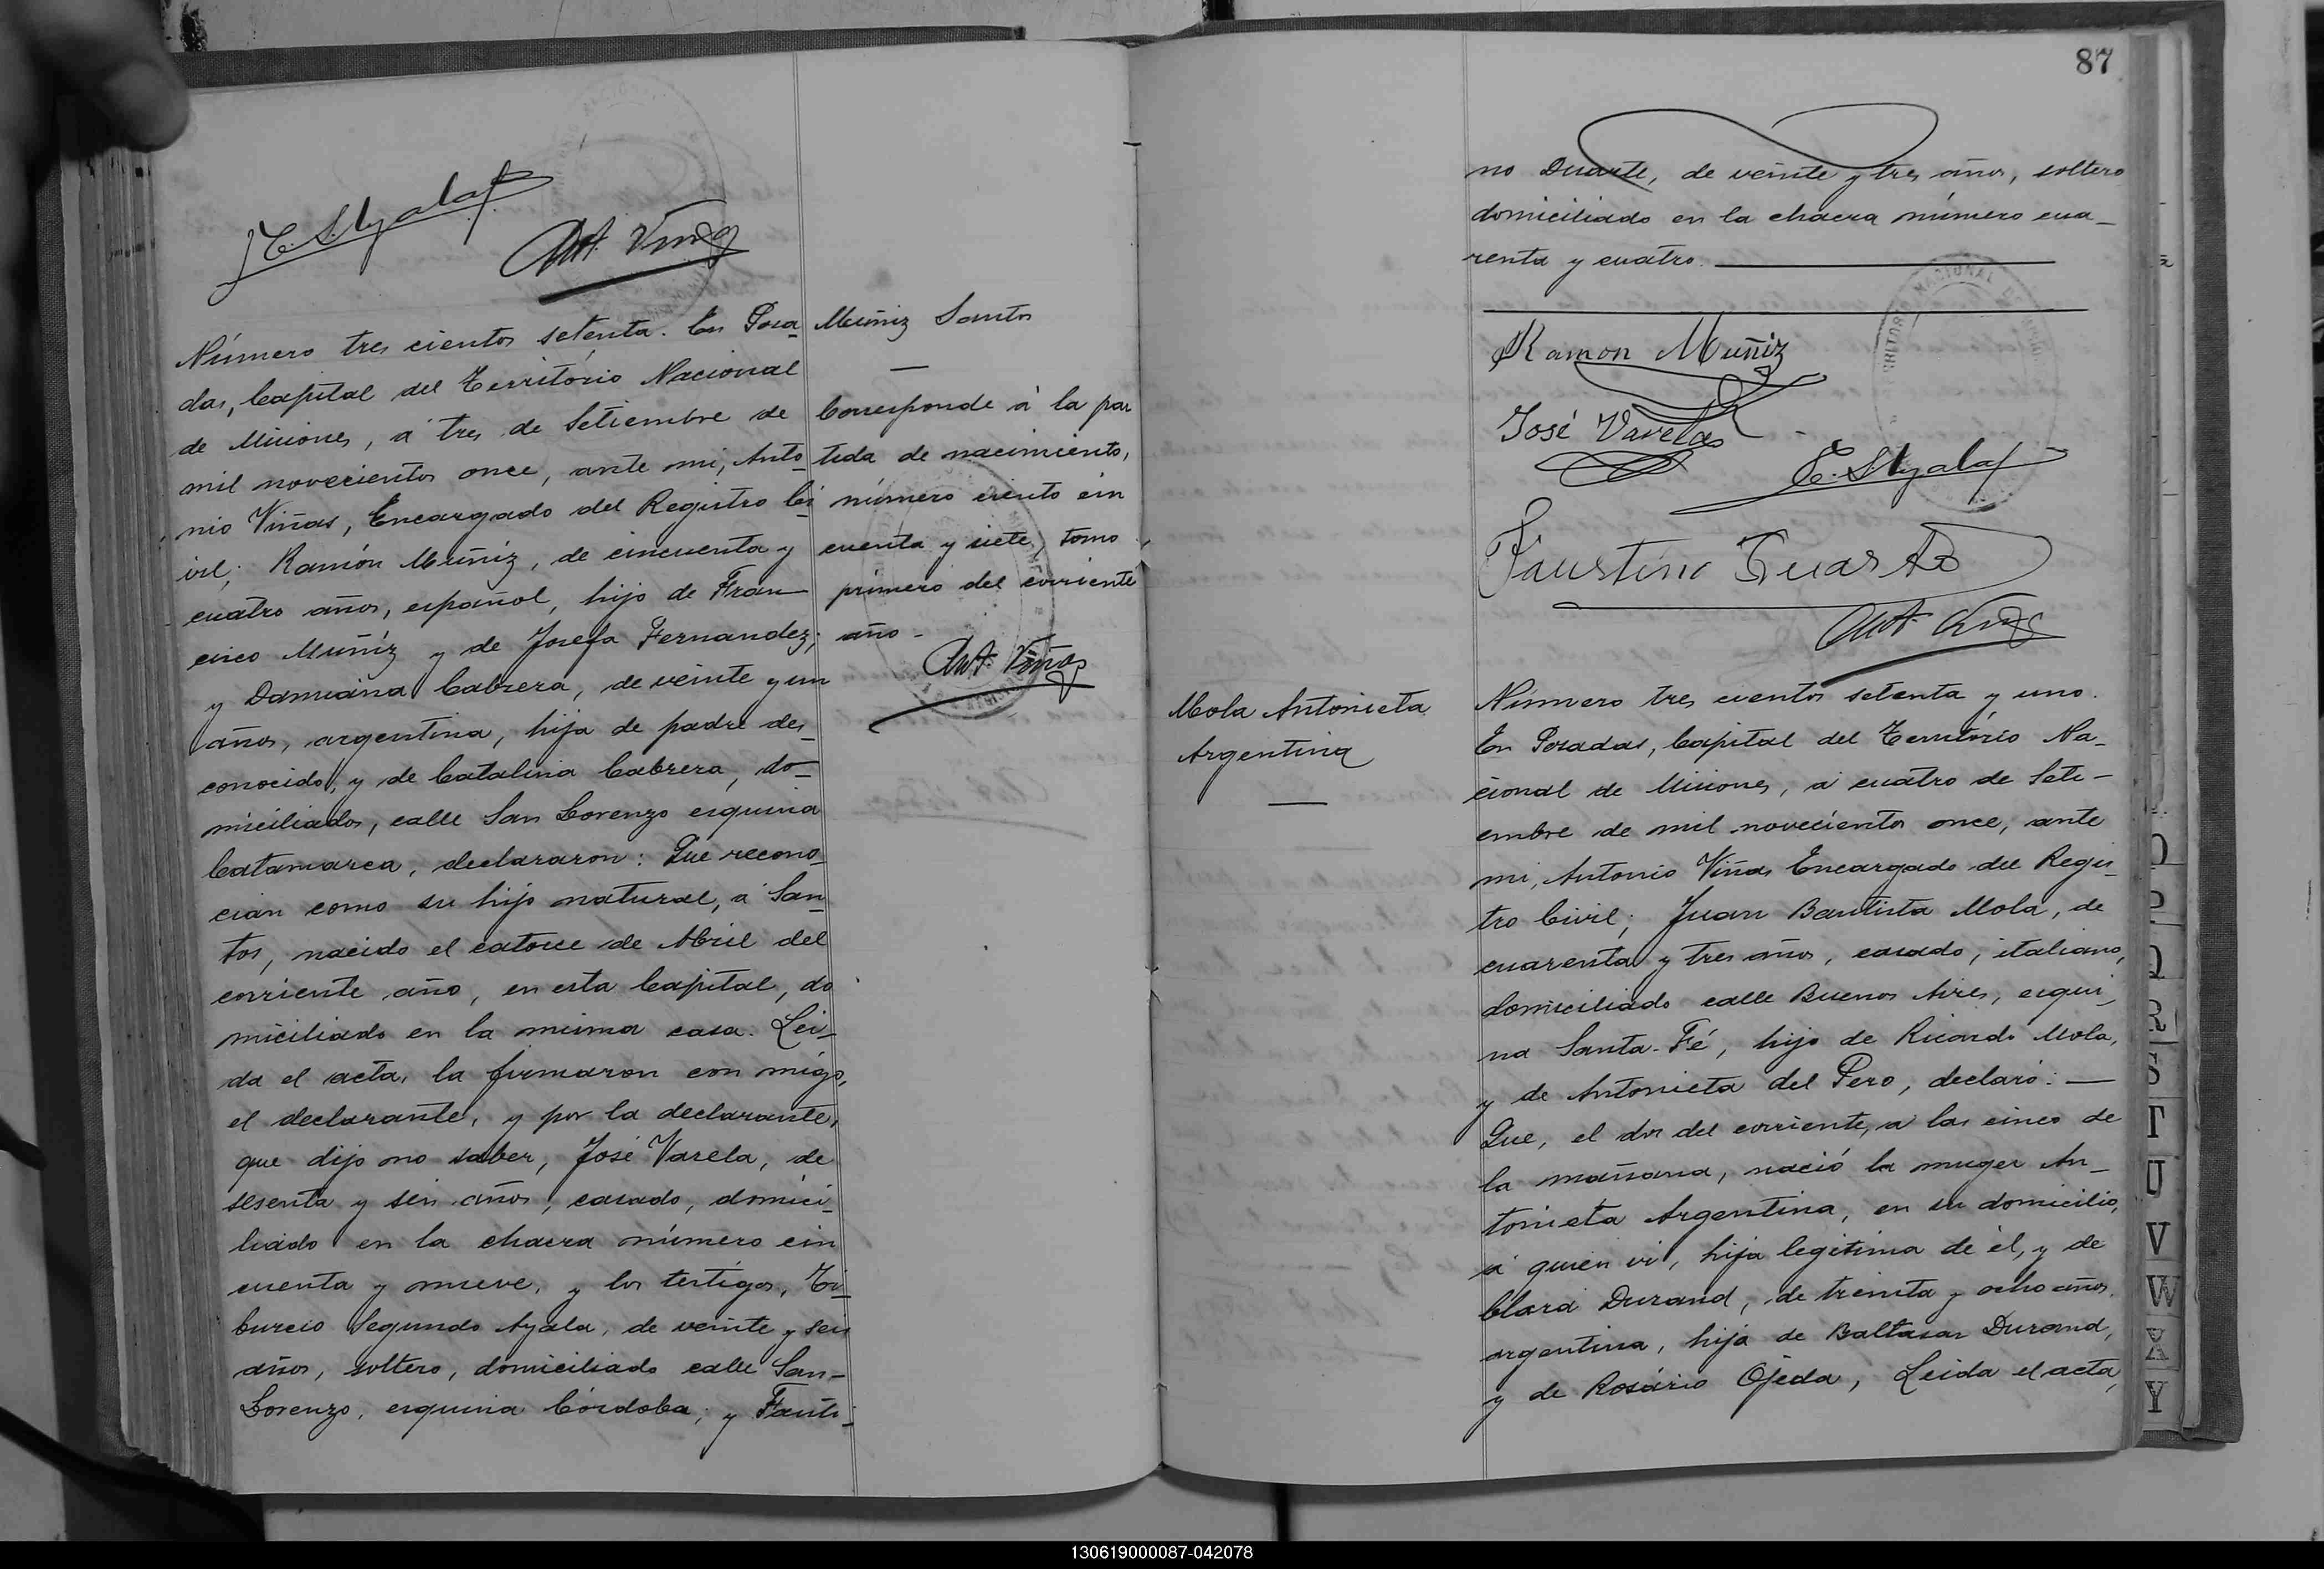 T. S. Ayala
Ant. Viñas
Número tres cientos setenta. En Posa_
das, Capital del Território Nacional
de Misiones, á tres de Setiembre de
mil novecientos once, ante mi, Anto_
nio Viñas, Encargado del Registro Ci_
vil; Ramón Muñiz, de cincuenta y
cuatro años, español, hijo de Fran_
cisco Muñiz y de Josefa Fernandez;
y Damiana Cabrera, de veinte y un
años, argentina, hija de padre des_
conocido, y de Catalina Cabrera, do_
miciliados, calle San Lorenzo esquina
Catamarca, declararon: Que recono_
cian como su hijo natural, á San_
tos, nacido el catorce de Abril del
corriente año, en esta Capital, do
miciliado en la misma casa. Lei_
da el acta, la firmaron con migo,
el declarante, y por la declarante,
que dijo no saber, José Varela, de
sesenta y seis años, casado, domici_
liado en la chacra número cin
cuenta y nueve, y los testigos, Ti_
burcio Segundo Ayala, de veinte y seis
años, soltero, domiciliado calle San_
Lorenzo, esquina Córdoba; y Fausti_
Muñiz Santos
Corresponde á la par
tida de nacimiento,
número ciento cin
cuenta y siete, tomo
primero del corriente
año_
Ant. Viñas
87
no Duarte, de veinte y tres años, soltero
domiciliado en la chacra número cua_
renta y cuatro.
Ramon Muñiz
José Varela
T. S. Ayala
Faustino Duarte
Ant. Viñas
Mola Antonieta
Argentina
Número tres cientos setenta y uno.
En Posadas, Capital del Território Na_
cional de Misiones, á cuatro de Seti_
embre de mil novecientos once, ante
mi, Antonio Viñas Encargado del Regis_
tro Civil; Juan Bautista Mola, de
cuarenta y tres años, casado, italiano,
domiciliado calle Buenos Aires, esqui_
na Santa-Fé, hijo de Ricardo Mola,
y de Antonieta del Pero, declaró: _
Que, el dos del corriente, a las cinco de
la mañana, nació la muger An_
tonieta Argentina, en su domicilio,
á quien vi, hija legítima de él, y de
Clara Durand, de treinta y ocho años,
argentina, hija de Baltasar Durand,
y de Rosário Ojeda, Leida el acta,
O
P
Q
R
S
T
U
V
W
X
Y
130619000087-042078